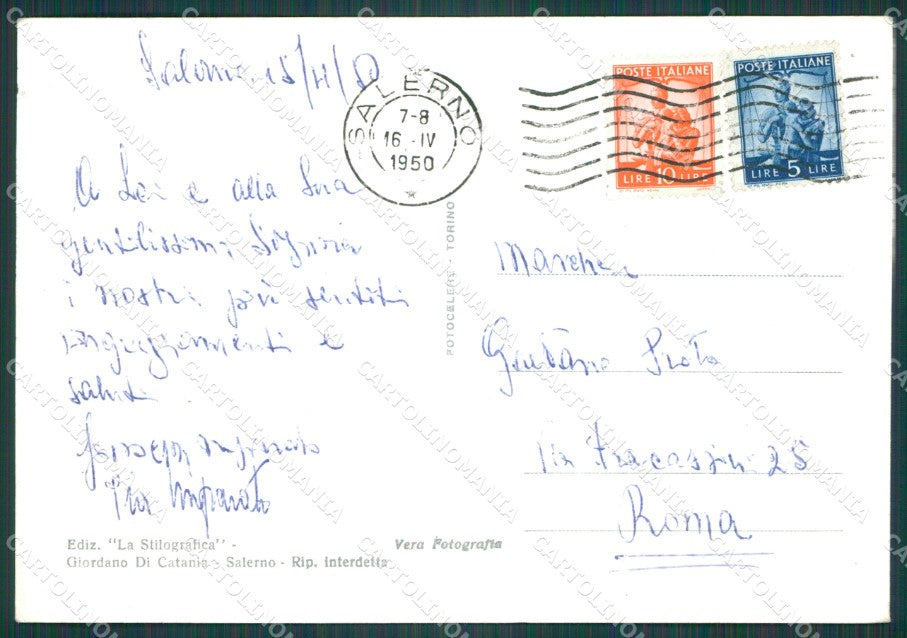 Salerno 15/4/50
SALERNO
7-8
16.-IV
1950
POSTE ITALIANE
LIRE 10 LIRE
POSTE ITALIANE
LIRE 5 LIRE
A Lei e alla Sua
gentilissima Signora
i nostri più sentiti
ringraziamenti e
saluti
Giuseppe
Pia
FOTOCELERE - TORINO
Marchese
Gaetano
Via Fracassini 25
Roma
Ediz. "La Stilografica" -
Giordano Di Catania - Salerno - Rip. interdetta
Vera Fotografia
CARTOLINOMANIA